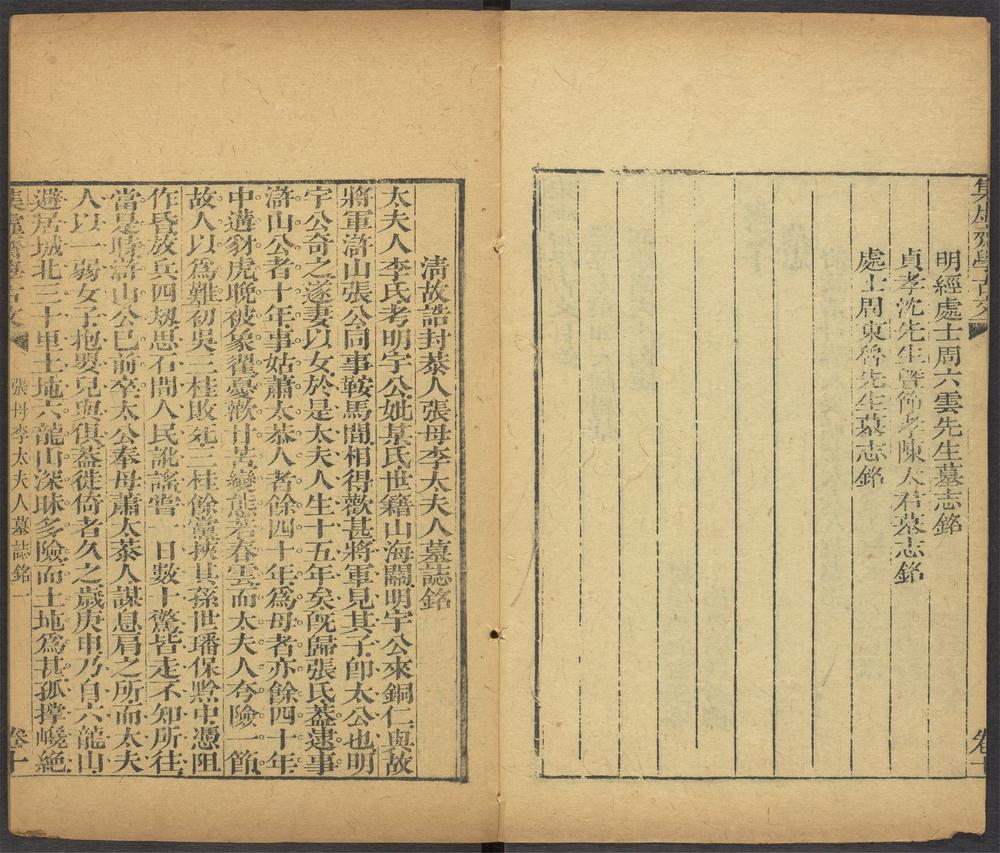 明經處士周六雲先生墓志銘
貞孝沈先生暨節孝陳太君墓志銘
處士周東魯先生墓志銘
卷十
清故誥封恭人張母李太夫人墓誌銘
太夫人李氏考明宇公妣某氏世籍山海關明宇公來銅仁與故
將軍滸山張公同事鞍馬間相得歡甚將軍見其子卽太公也明
宇公奇之遂妻以女於是太夫人生十五年矣旣歸張氏蓋逮事
滸山公者十年事姑蕭太恭人者餘四十年爲母者亦餘四十年
中遘豺虎晚被象翟憂歡甘苦變態若春雲而太夫人夸險一節
故人以爲難初吳三桂敗死三桂餘黨挾其孫世璠保黔中憑阻
作昏放兵四刼思石間人民訛謠嘗一日數十驚皆走不知所往
當是時滸山公已前卒太公奉母蕭太恭人謀息肩之所而太夫
人以一弱女子抱嬰兒與俱蓋徙倚者久之歲庚申乃自六龍山
避居城北三十里土地六龍山深昧多險而土地爲甚孤撑巉絶
集虛齋學古文
張母李太夫人墓誌銘
一
卷十